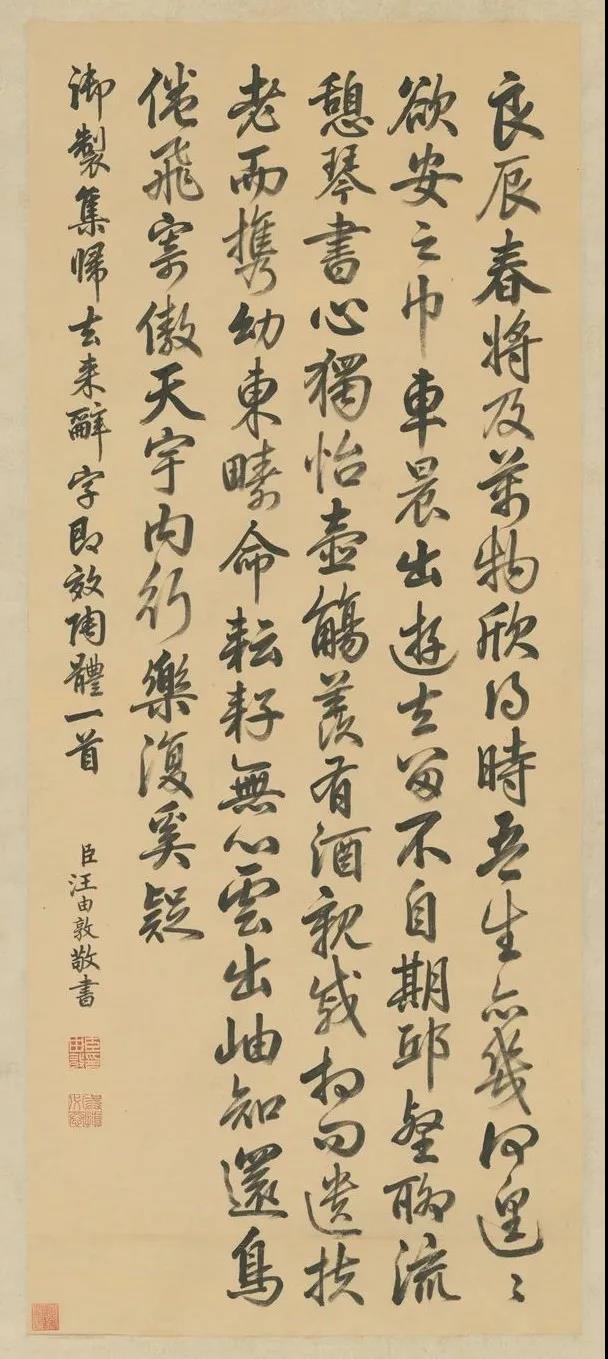 良辰春將及萬物欣得時吾生亦幾何遑〻
欲安之巾車晨出遊去留不自期邱壑聊流
憩琴書心獨怡壺觴羨有酒親戚相問遺扶
老而携幼東疇命耘耔無心雲出岫知還鳥
倦飛寄傲天宇内行樂復奚疑
御製集歸去来辭字即效陶體一首
臣汪由敦敬書